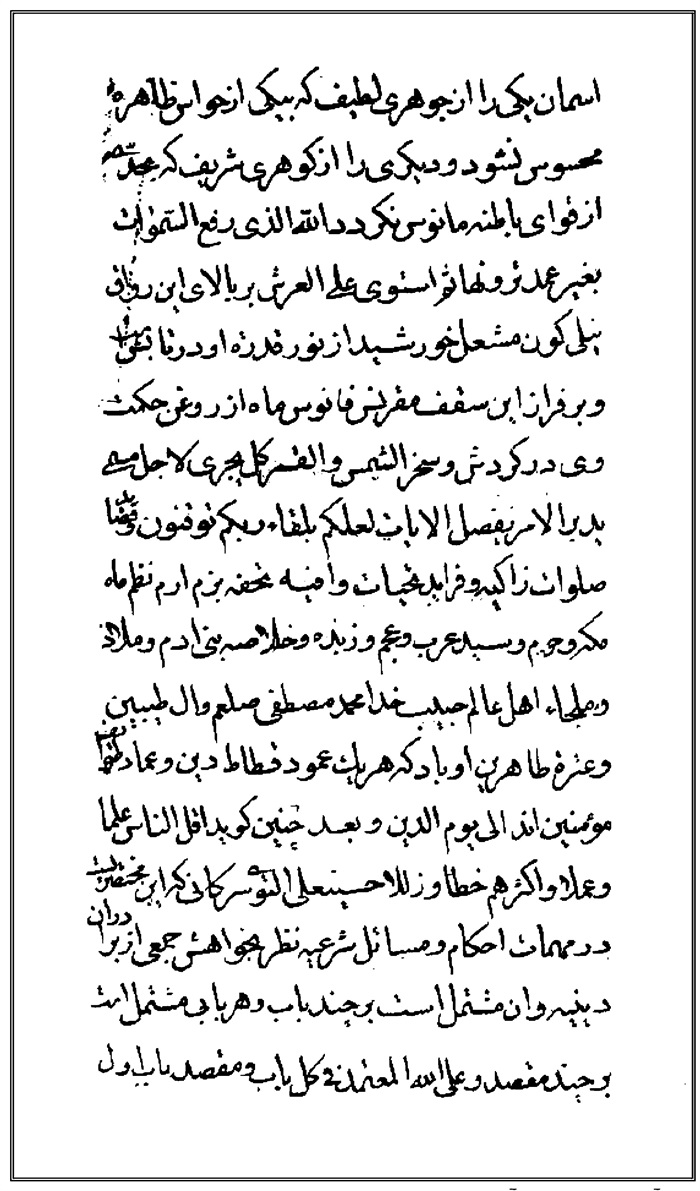 اسمان یکی را از جوهری لطیف که بیکی از حواس ظاهره
محسوس نشود و دیکری را از کوهری شریف که
از قوای باطنه مانوس نکردد الله الذی رفع السموات
بغیر عمد ترونها ثم استوی علی العرش بر بالای این رواق
نیلی کون مشعل خورشید از نور قدرة او در تابش
و بر فراز این سقف مقرنس فانوس ماه از روغن حکمت
وی در کردش و سخر الشمس و القمر کل یجری لاجل مسمی
یدبر الامر یفصل الایات لعلکم بلقاء ربکم توقنون
صلوات زاکیه و فراید تحیات وافیه تحفه بزم ارم نظم ماه
مکه و حرم و سید عرب و عجم و زبده و خلاصه بنی ادم و ملاذ
و ملجاء اهل عالم حبیب خدا محمد مصطفی صلعم وال طیبین
و عترة طاهرین او باد که هریك عمود فسطاط دین و عماد
مؤمنین اند الی یوم الدین و بعد چنین کوید اقل الناس علما
و عملا و اکثرهم خطا و زللا حسینعلی التوسرکانی که این مختصریست
در مهمات احکام و مسائل شرعیه نظر بخواهش جمعی از برادران
دینیه وان مشتمل است بر چند باب و هر بابی مشتمل است
بر چند مقصد و علی الله المعتمد فی کل باب و مقصد باب اول